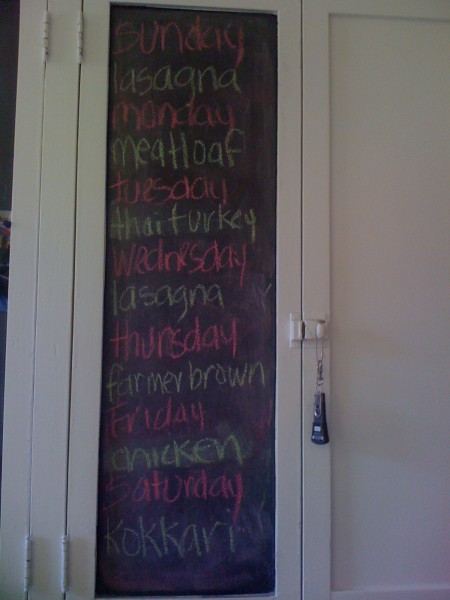 sunday
lasagna
monday
meatloaf
tuesday
thai turkey
wednesday
lasagna
thursday
farmer brown
friday
chicken
saturday
kokkari